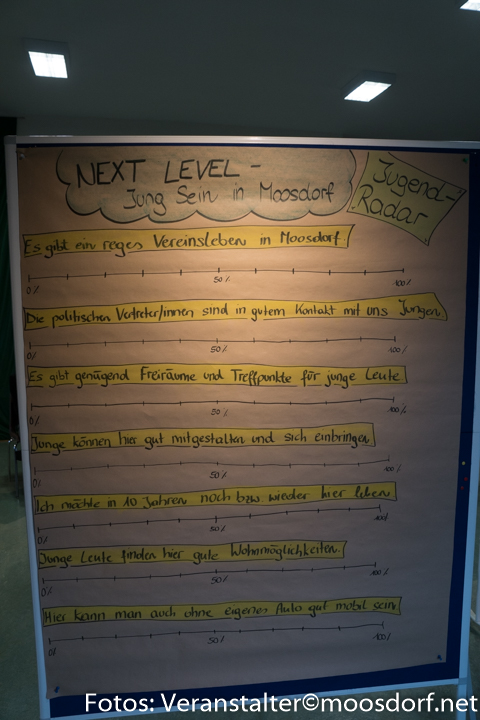 NEXT LEVEL -
Jung Sein in Moosdorf
Jugend-
Radar
Es gibt ein reges Vereinsleben in Moosdorf.
0% 50% 100%
Die politischen Vertreter/innen sind in gutem Kontakt mit uns Jungen.
0% 50% 100%
Es gibt genügend Freiräume und Treffpunkte für junge Leute.
0% 50% 100%
Junge können hier gut mitgestalten und sich einbringen.
0% 50% 100%
Ich möchte in 10 Jahren noch bzw. wieder hier leben.
0% 50% 100%
Junge Leute finden hier gute Wohnmöglichkeiten.
0% 50% 100%
Hier kann man auch ohne eigenes Auto gut mobil sein
0% 50% 100%
Fotos: Veranstalter©moosdorf.net